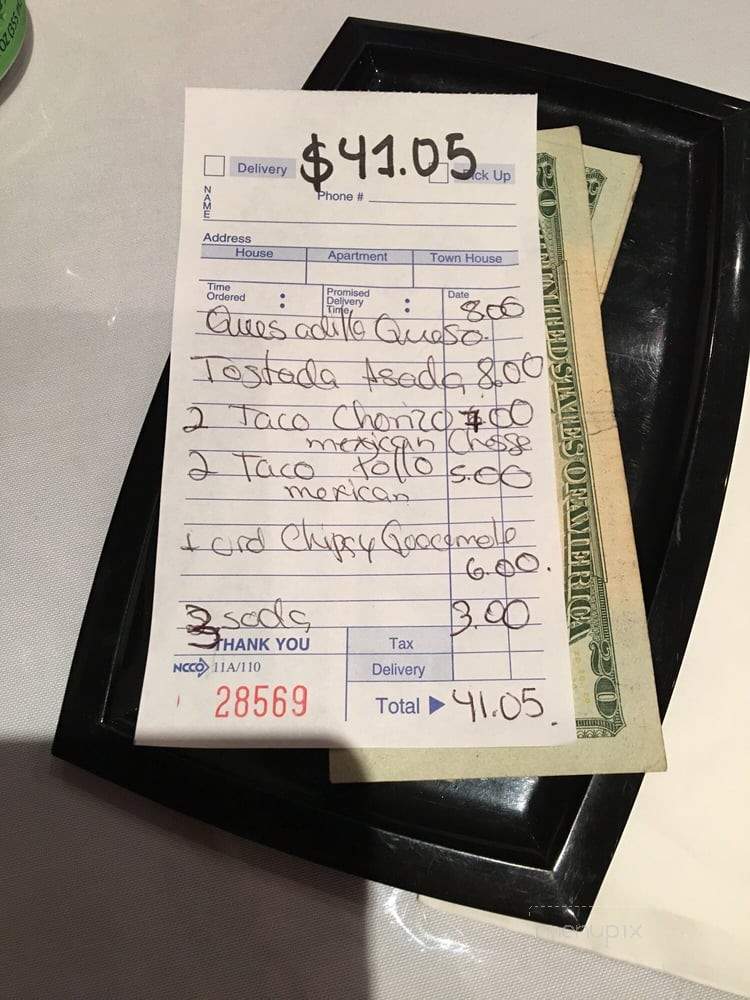 $41.05
Delivery
Pick Up
NAME
Phone #
Address
House Apartment Town House
Time Ordered : Promised Delivery Time : Date
Quesadilla Queso. 8.00
Tostada Asada 8.00
2 Taco Chorizo 7.00
mexican Chesse
2 Taco Pollo 5.00
mexican
1 ord Chips y Guacamole
6.00.
3 soda 3.00
THANK YOU Tax
NCCO 11A/110 Delivery
28569 Total ▶ 41.05
20 THE UNITED STATES OF AMERICA 20
menupix